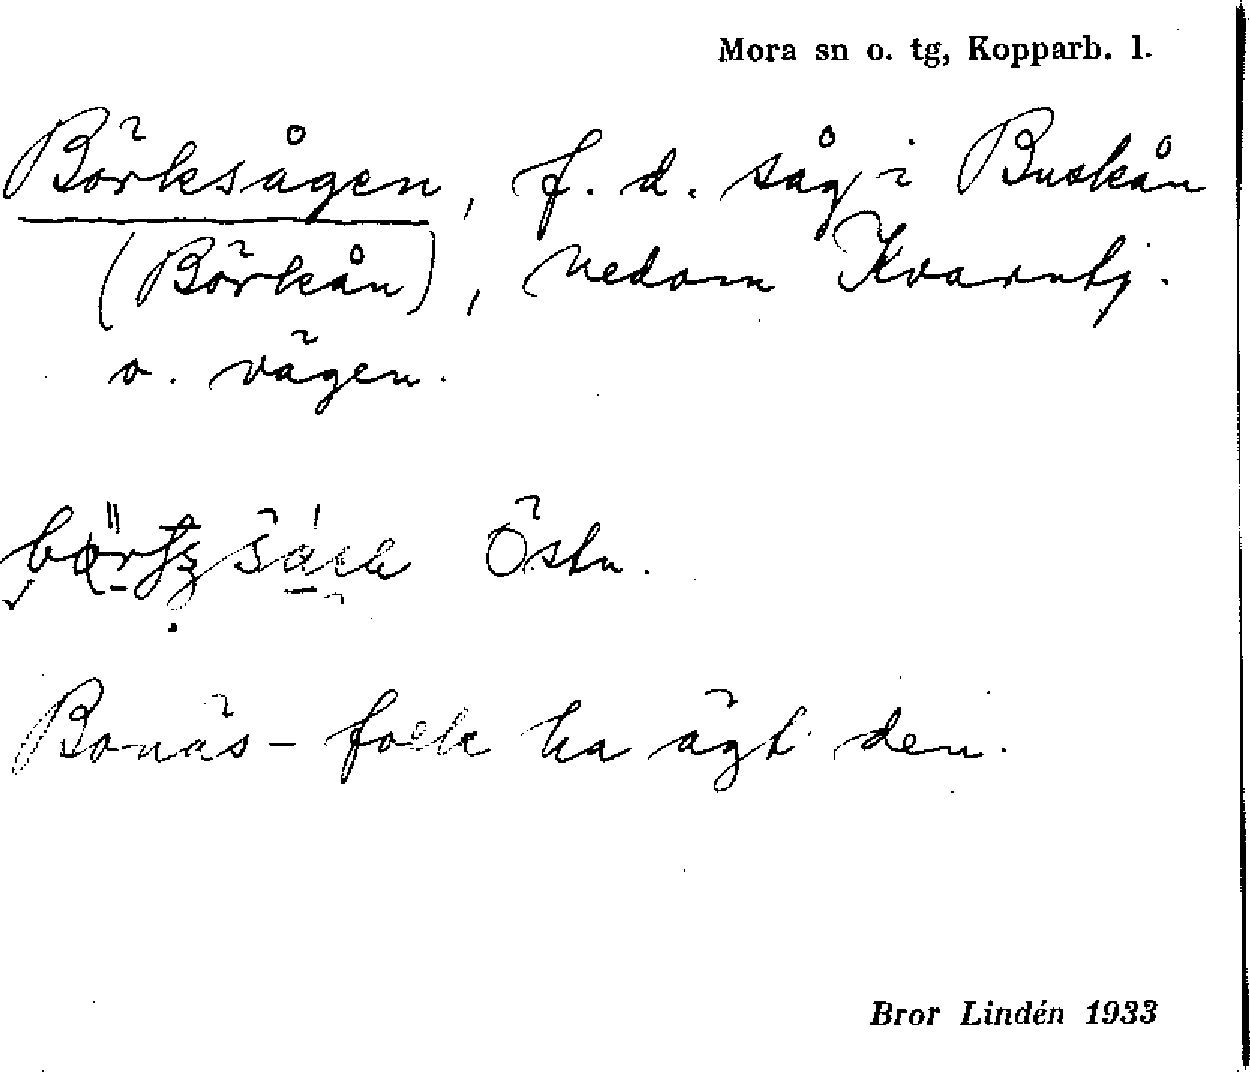 Mora sn o. tg, Kopparb. l.
Börksågen, f. d. såg i Buskån
(Börkån), nedom Kvarntj.
o. vägen.
Östn.
Bonäs-folk ha ägt den.
Bror Lindén 1933